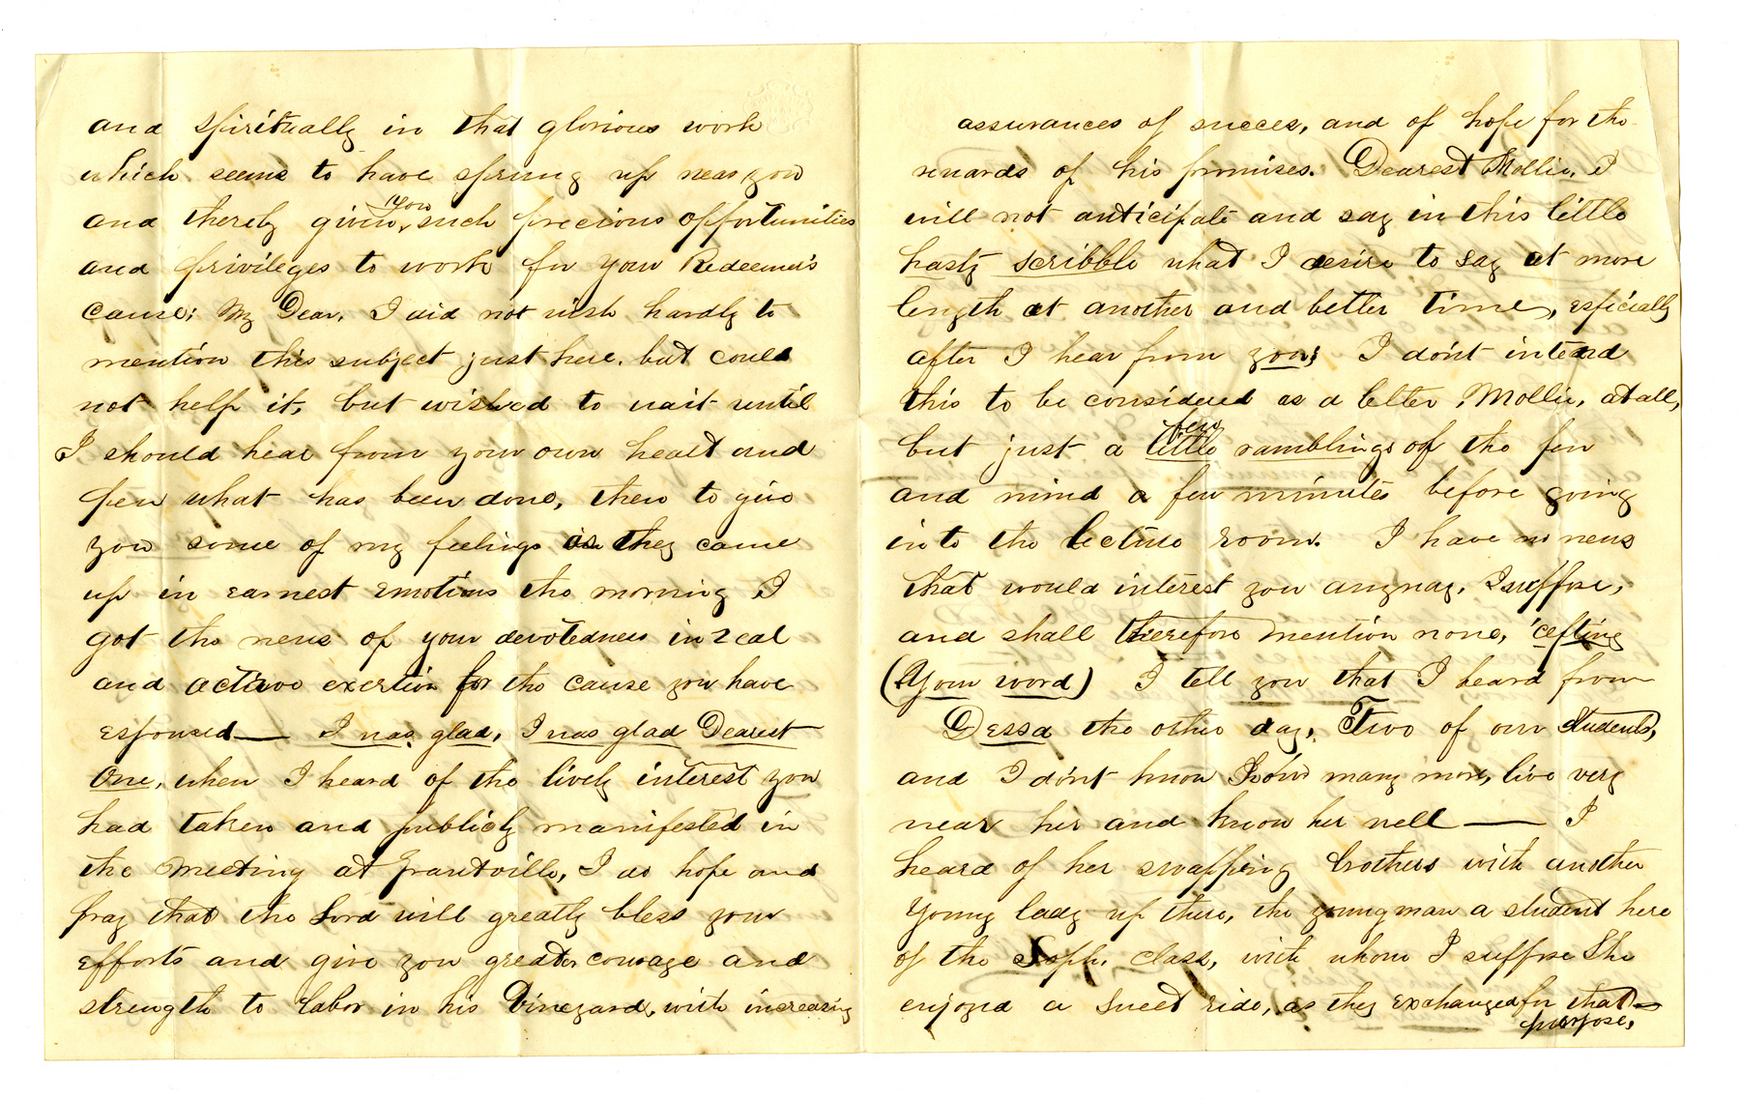 and spiritually in that glorious work
which seems to have sprung up near you
and thereby given you such precious opportunities
and privileges to work for your Redeemer's
cause; My Dear, I did not wish hardly to
mention this subject just here, but could
not help it, but wished to wait until
I should hear from your own heart and
pen what has been done, then to give
you some of my feelings as they came
up in earnest emotions the morning I
got the news of your devotedness in zeal
and active exertion for the cause you have
espoused — I was glad, I was glad Dearest
One, when I heard of the lively interest you
had taken and publicly manifested in
the meeting at Grantville, I do hope and
pray that the Lord will greatly bless your
efforts and give you greater courage and
strength to labor in his Vineyard, with increasing
assurances of succes, and of hope for the
rewards of his promises. Dearest Mollie, I
will not anticipate and say in this little
hasty scribble what I desire to say at more
length at another and better time, especially
after I hear from you; I don't intend
this to be considered as a letter, Mollie, at all,
but just a few little ramblings of the pen
and mind a few minutes before going
into the lecture room. I have no news
that would interest you anyway, I suppose,
and shall therefore mention none, 'cepting
(your word) I tell you that I heard from
Dessa the other day, Two of our students,
and I don't know how many more, live very
near her and know her well — I
heard of her swapping brothers with another
young lady up there, the young man a student here
of the Soph. class, with whom I suppose she
enjoyed a sweet ride, as they exchanged for that
purpose,